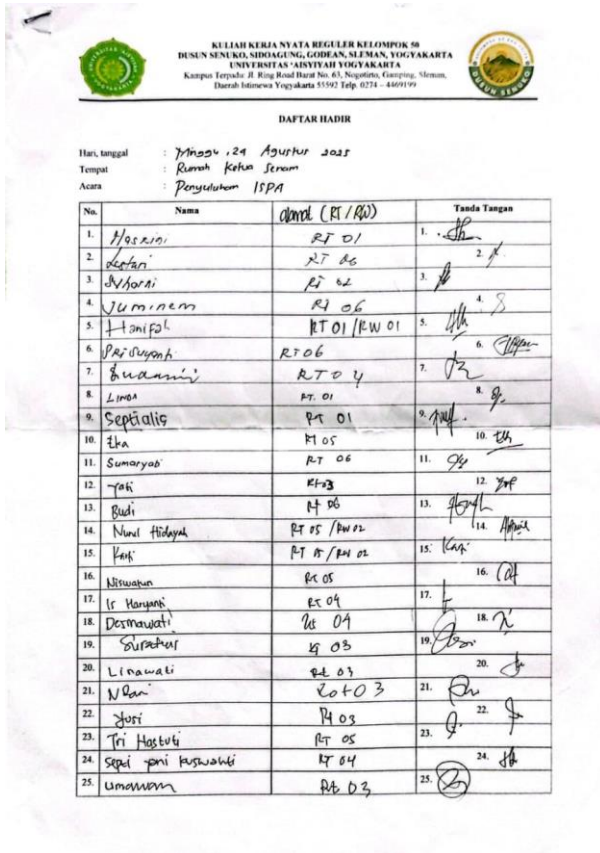 KULIAH KERJA NYATA REGULER KELOMPOK 50
DUSUN SENUKO, SIDOAGUNG, GODEAN, SLEMAN, YOGYAKARTA
UNIVERSITAS 'AISYIYAH YOGYAKARTA
Kampus Terpadu: Jl. Ring Road Barat No. 63, Nogotirto, Gamping, Sleman,
Daerah Istimewa Yogyakarta 55592 Telp. 0274 – 4469199
DUSUN SENUKO
DAFTAR HADIR
Hari, tanggal : Minggu, 24 Agustus 2025
Tempat : Rumah Ketua Senam
Acara : Penyuluhan ISPA
No. Nama alamat (RT/RW) Tanda Tangan
1. RT 01 1.
2. Lestari RT 06 2.
3. RT 02 3.
4. Juminem RT 06 4.
5. Hanifah RT 01/RW 01 5.
6. RT 06 6.
7. RT 04 7.
8. LINDA RT. 01 8.
9. Septialis RT 01 9.
10. Eka RT 05 10.
11. Sumaryati RT 06 11.
12. Yati Rt 03 12.
13. Budi Rt 06 13.
14. Nurul Hidayah RT 05/RW 02 14.
15. RT 05/RW 02 15.
16. Niswatun Rt 05 16.
17. Is Haryanti RT 04 17.
18. Dermawati 04 18.
19. 03 19.
20. Linawati Rt 03 20.
21. 03 21.
22. Yusi Rt 03 22.
23. Tri Hastuti RT 05 23.
24. RT 04 24.
25. Rt 03 25.